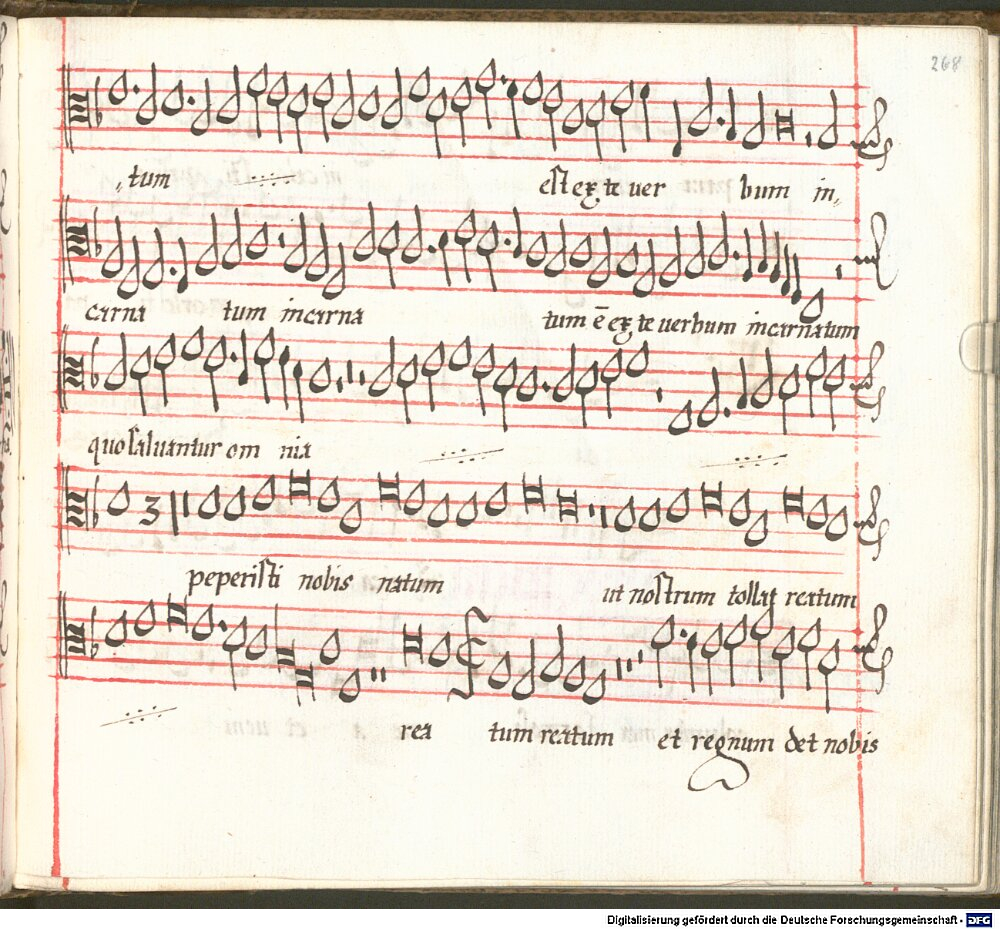 268
tum est ex te ver bum in
carna tum incarna tum ē ex te verbum incarnatum
quo salvantur om nia
3
peperisti nobis natum ut nostrum tollat reatum
rea tum reatum et regnum det nobis
Digitalisierung gefördert durch die Deutsche Forschungsgemeinschaft - DFG